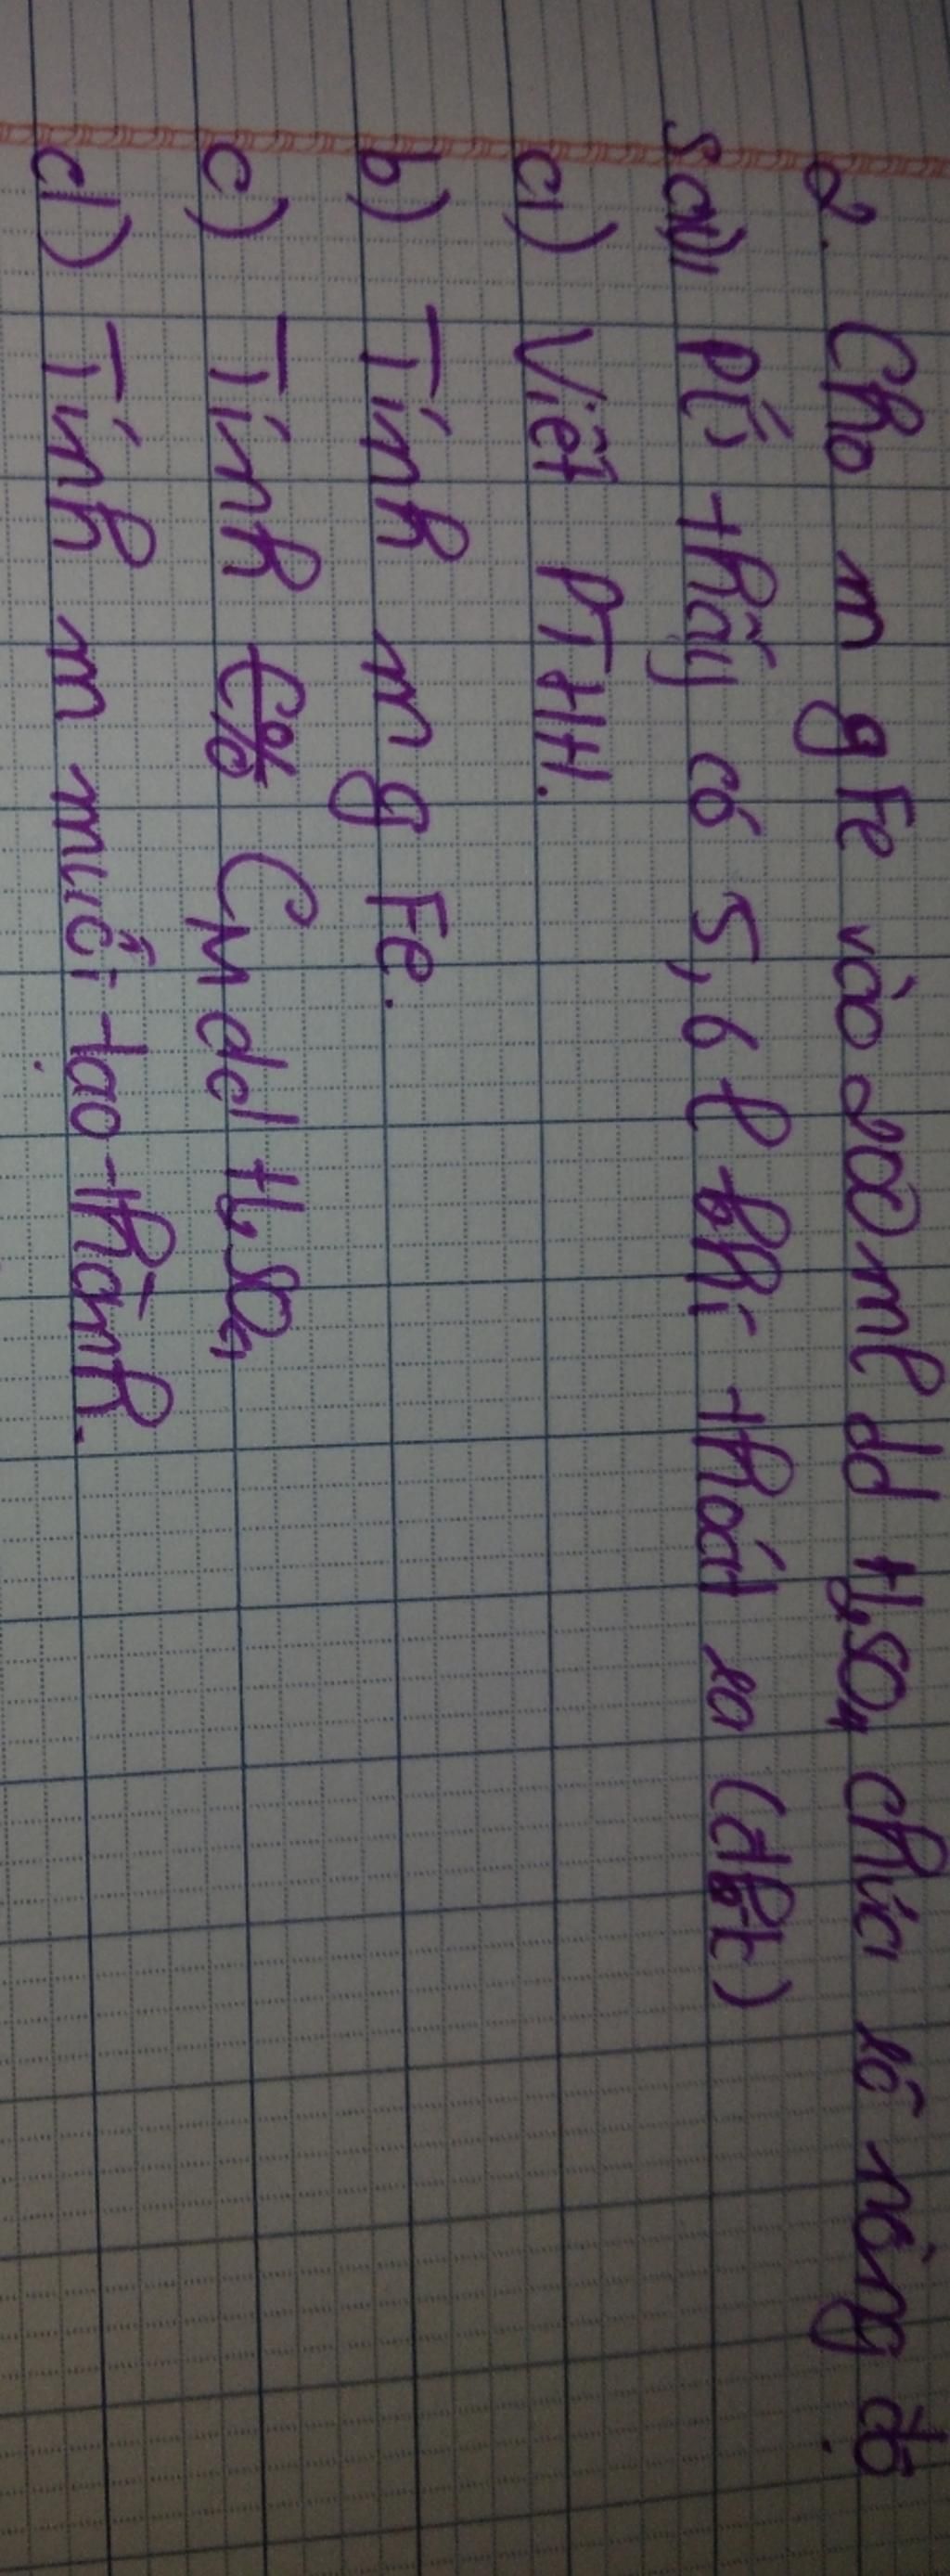 2. Cho m g Fe vào 200 ml dd H₂SO₄ chưa rõ nồng độ.
Sau pứ thấy có 5,6 l khí thoát ra (đktc)
a) Viết PTHH.
b) Tính m g Fe.
c) Tính C% CM dd H₂SO₄
d) Tính m muối tạo thành.